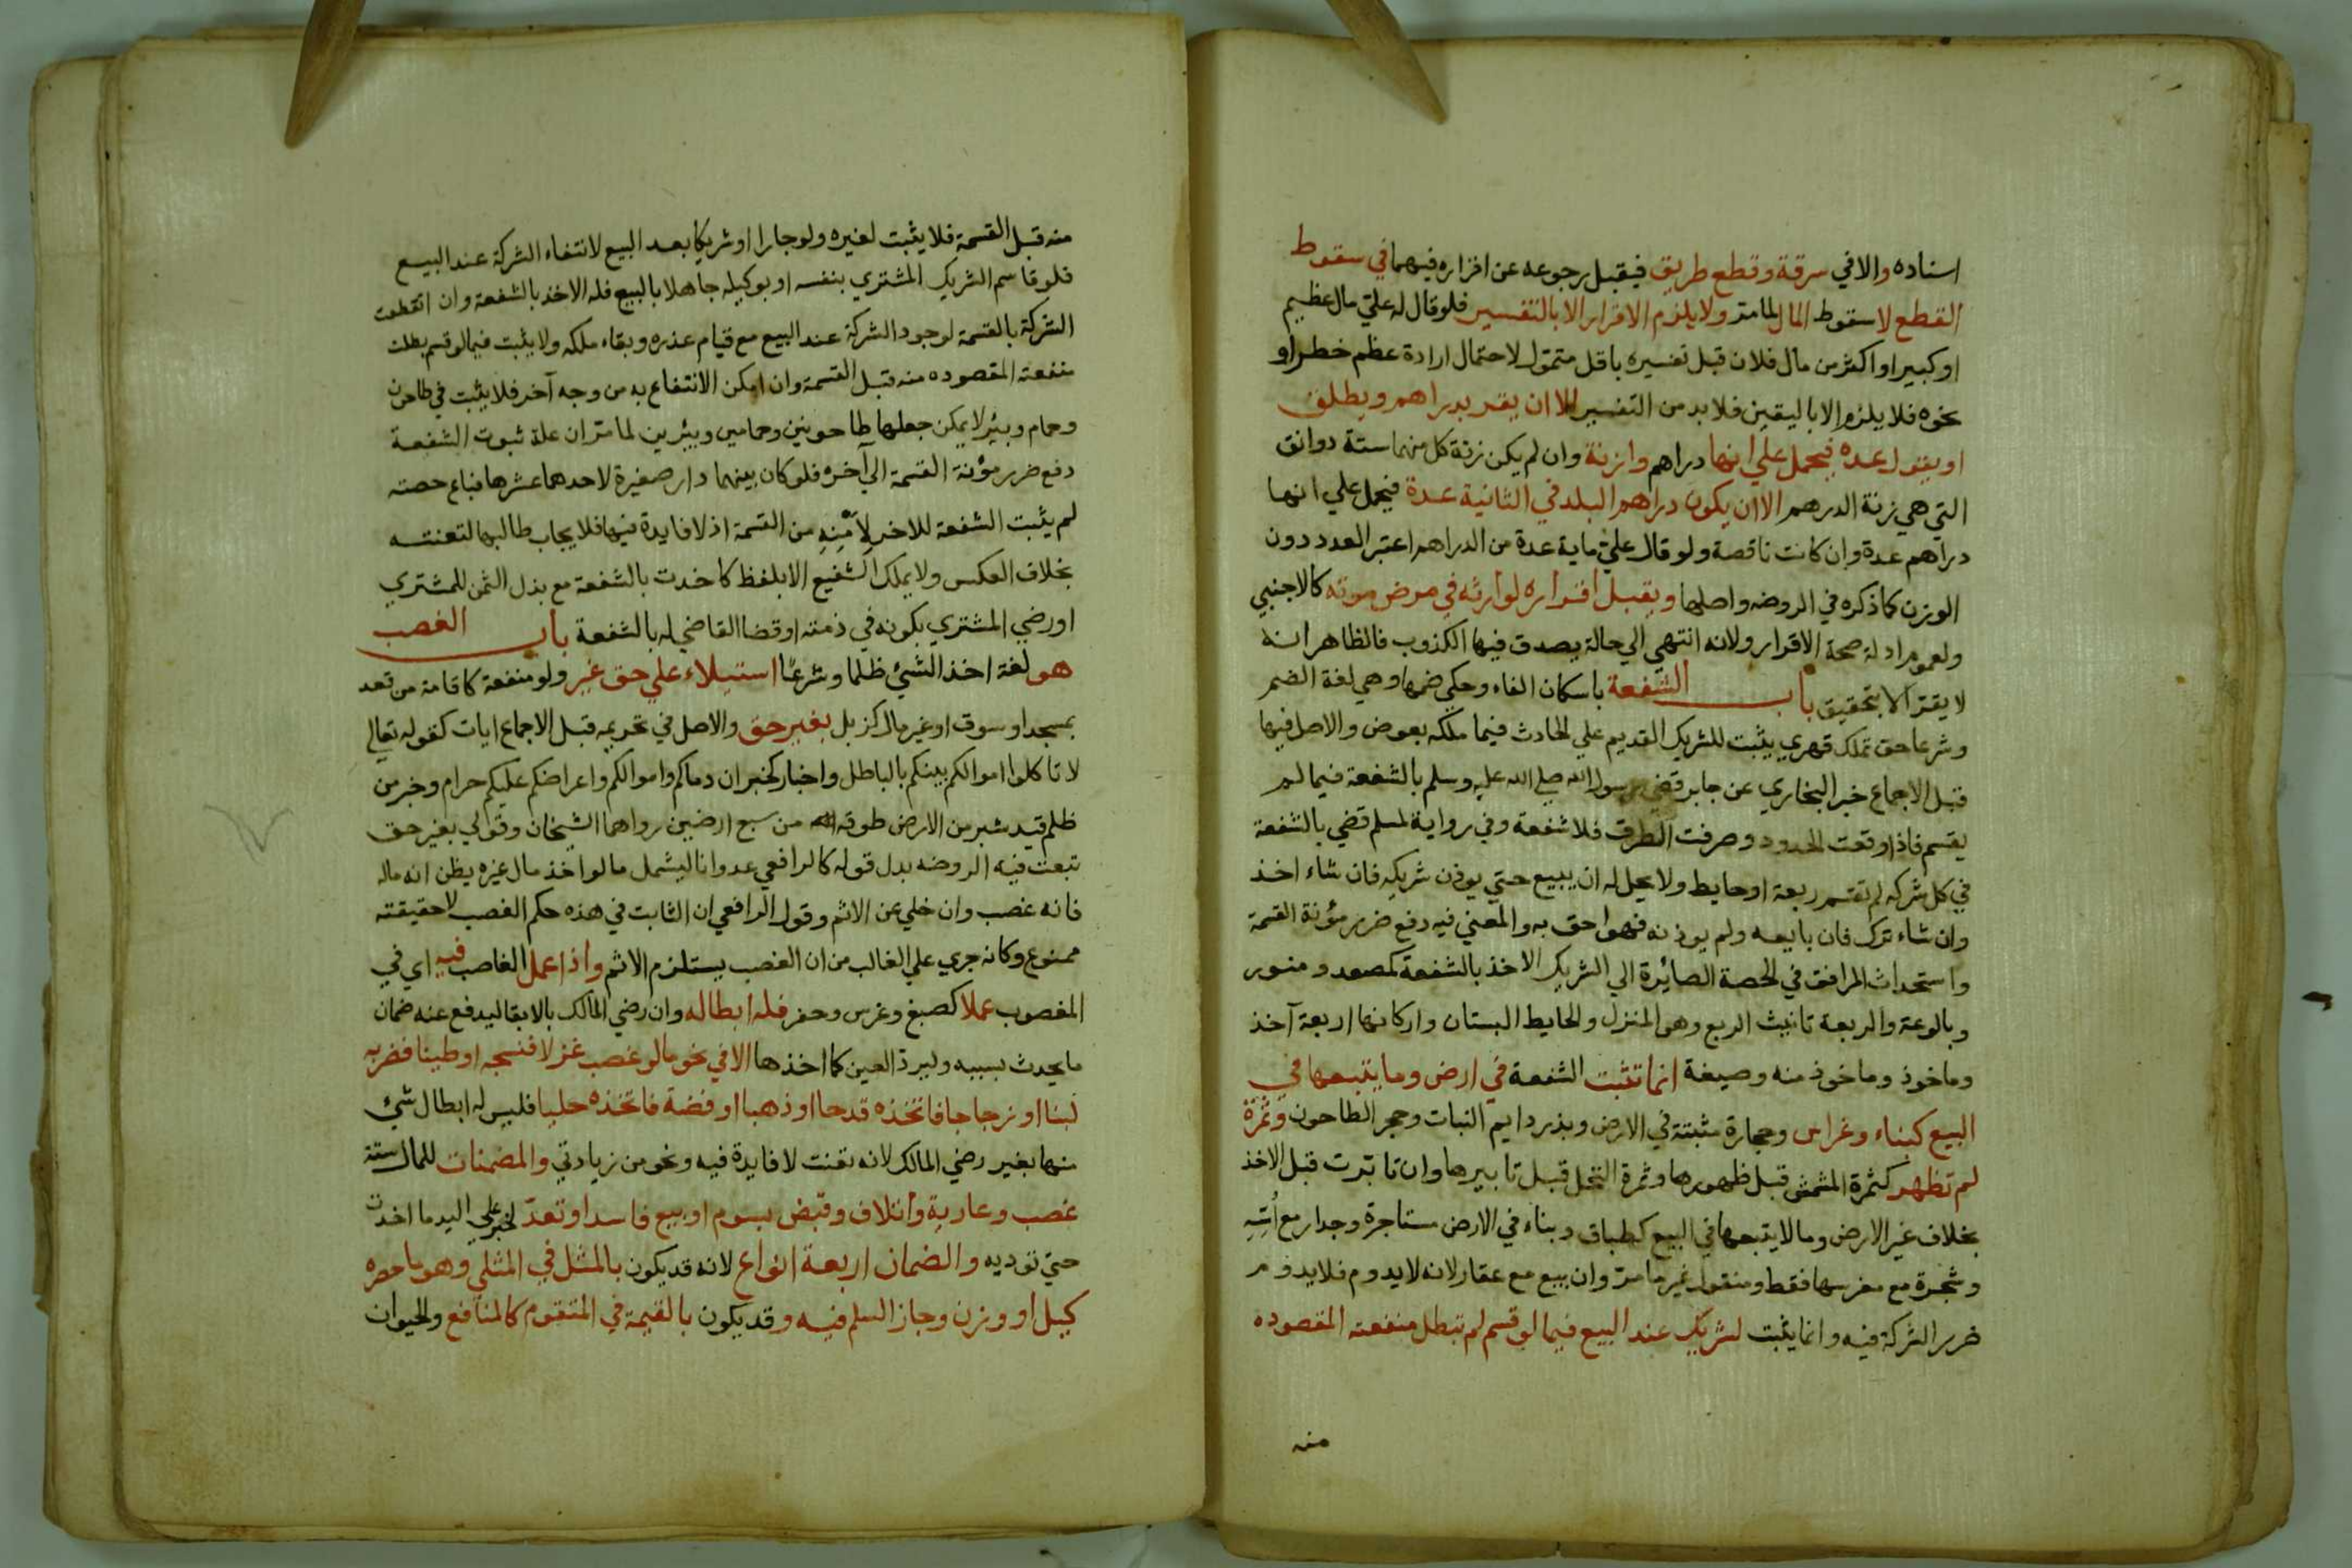 اسناده والا في سرقة وقطع طريق فيقبل رجوعه عن اقراره فيهما في سقوط
القطع لا سقوط المال لما مر ولا يلزم الاقرار الا بالتفسير فلو قال له علي مال عظيم
او كبير او اكثر من مال فلان قبل تفسيره باقل متمول لاحتمال ارادة عظم خطر او
نحوه فلا يلزم الا باليقين فلا بد من التفسير الا ان يقر بدراهم ويطلق
او يقول عده فيحمل علي انها دراهم وازنة وان لم يكن زنة كل منها ستة دوانق
التي هي زنة الدرهم الا ان يكون دراهم البلد في الثانية عدة فيحمل علي انها
دراهم عدة وان كانت ناقصة ولو قال علي ماية عدة من الدراهم اعتبر العدد دون
الوزن كما ذكره في الروضه واصلها ويقبل اقراره لوارثه في مرض موته كالاجنبي
ولعموم ادلة صحة الاقرار ولانه انتهي الي حالة يصدق فيها الكذوب فالظاهر انه
لا يقر الا بتحقيق باب الشفعة باسكان الفاء وحكي ضمها وهي لغة الضم
وشرعا حق تملك قهري يثبت للشريك القديم علي الحادث فيما ملكه بعوض والاصل فيها
قبل الاجماع خبر البخاري عن جابر قضي رسول الله صلي الله عليه وسلم بالشفعة فيما لم
يقسم فاذا وقعت الحدود وصرفت الطرق فلا شفعة وفي رواية لمسلم قضي بالشفعة
في كل شركه لم تقسم ربعة او حايط ولا يحل له ان يبيع حتي يوذن شريكه فان شاء اخذ
وان شاء ترك فان بايعه ولم يوذنه فهو احق به والمعني فيه دفع ضرر مؤنة القسمة
واستحداث المرافق في الحصة الصائرة الي الشريك الاخذ بالشفعة كمصعد ومنور
وبالوعة والربعة تانيث الربع وهو المنزل والحايط البستان واركانها اربعة آخذ
وماخوذ وماخوذ منه وصيغة انما تثبت الشفعة في ارض وما يتبعها في
البيع كبناء وغراس وحجارة مثبتة في الارض وبذر دايم النبات وحجر الطاحون وثمرة
لم تظهر كثمرة المشمش قبل ظهورها وثمرة النخل قبل تابيرها وان تابرت قبل الاخذ
بخلاف غير الارض وما لا يتبعها في البيع كطباق وبناء في الارض مستاجرة وجدار مع اُسِّهِ
وشجرة مع مغرسها فقط ومنقول غير ما مر وان بيع مع عقار لانه لا يدوم فلا يدوم
ضرر الشركة فيه وانما يثبت لشريك عند البيع فيما لو قسم لم تبطل منفعته المقصوده
منه
منه قبل القسمة فلا يثبت لغيره ولو جارا او شريكا بعد البيع لانتفاء الشركة عند البيع
فلو قاسم الشريك المشتري بنفسه او بوكيله جاهلا بالبيع فله الاخذ بالشفعة وان انقطعت
الشركة بالقسمة لوجود الشركة عند البيع مع قيام عذره وبقاء ملكه ولا يثبت فيما لو قسم بطلت
منفعته المقصوده منه قبل القسمة وان امكن الانتفاع به من وجه آخر فلا يثبت في طاحون
وحمام وبئر لا يمكن جعلها طاحونين وحمامين وبيرين لما مر ان علة ثبوت الشفعة
دفع ضرر مؤنة القسمة الي آخره فلو كان بينهما دار صغيرة لاحدهما عشرها فباع حصته
لم يثبت الشفعة للاخر لِاَمْنِهِ من القسمة اذ لا فايدة فيها فلا يجاب طالبها لتعنته
بخلاف العكس ولا يملك الشفيع الا بلفظ كاخذت بالشفعة مع بذل الثمن للمشتري
او رضي المشتري بكونه في ذمته او قضا القاضي له بالشفعة باب الغصب
هو لغة اخذ الشئ ظلما وشرعًا استيلاء علي حق غير ولو منفعة كاقامة من قعد
بمسجد او سوق او غير مال كزبل بغير حق والاصل في تحريمه قبل الاجماع ايات كقوله تعالي
لا تاكلوا اموالكم بينكم بالباطل واخبار كخبر ان دماكم واموالكم واعراضكم عليكم حرام وخبر من
ظلم قيد شبر من الارض طوقه الله من سبع ارضين رواهما الشيخان وقولي بغير حق
تبعت فيه الروضه بدل قوله كالرافعي عدوانا ليشمل ما لو اخذ مال غيره يظن انه ماله
فانه غصب وان خلي عن الاثم وقول الرافعي ان الثابت في هذه حكم الغصب لا حقيقته
ممنوع وكانه جري علي الغالب من ان الغصب يستلزم الاثم واذا عمل الغاصب فيه اي في
المغصوب عملا كصبغ وغرس وحفر فله ابطاله وان رضي المالك بالابقا ليدفع عنه ضمان
ما يحدث بسببه وليرد العين كما اخذها الا في نحو ما لو غصب غزلا فنسجه او طينا فضربه
لبنا او زجاجا فاتخذه قدحا او ذهبا او فضة فاتخذه حليا فليس له ابطال شئ
منها بغير رضي المالك لانه تعنت لا فايدة فيه ونحو من زيادتي والمضمنات للمال ستة
غصب وعارية واتلاف وقبض بسوم او بيع فاسد او تعدّ لخبر علي اليد ما اخذت
حتي توديه والضمان اربعة انواع لانه قد يكون بالمثل في المثلي وهو ما حصره
كيل او وزن وجاز السلم فيه وقد يكون بالقيمة في المتقوم كالمنافع والحيوان